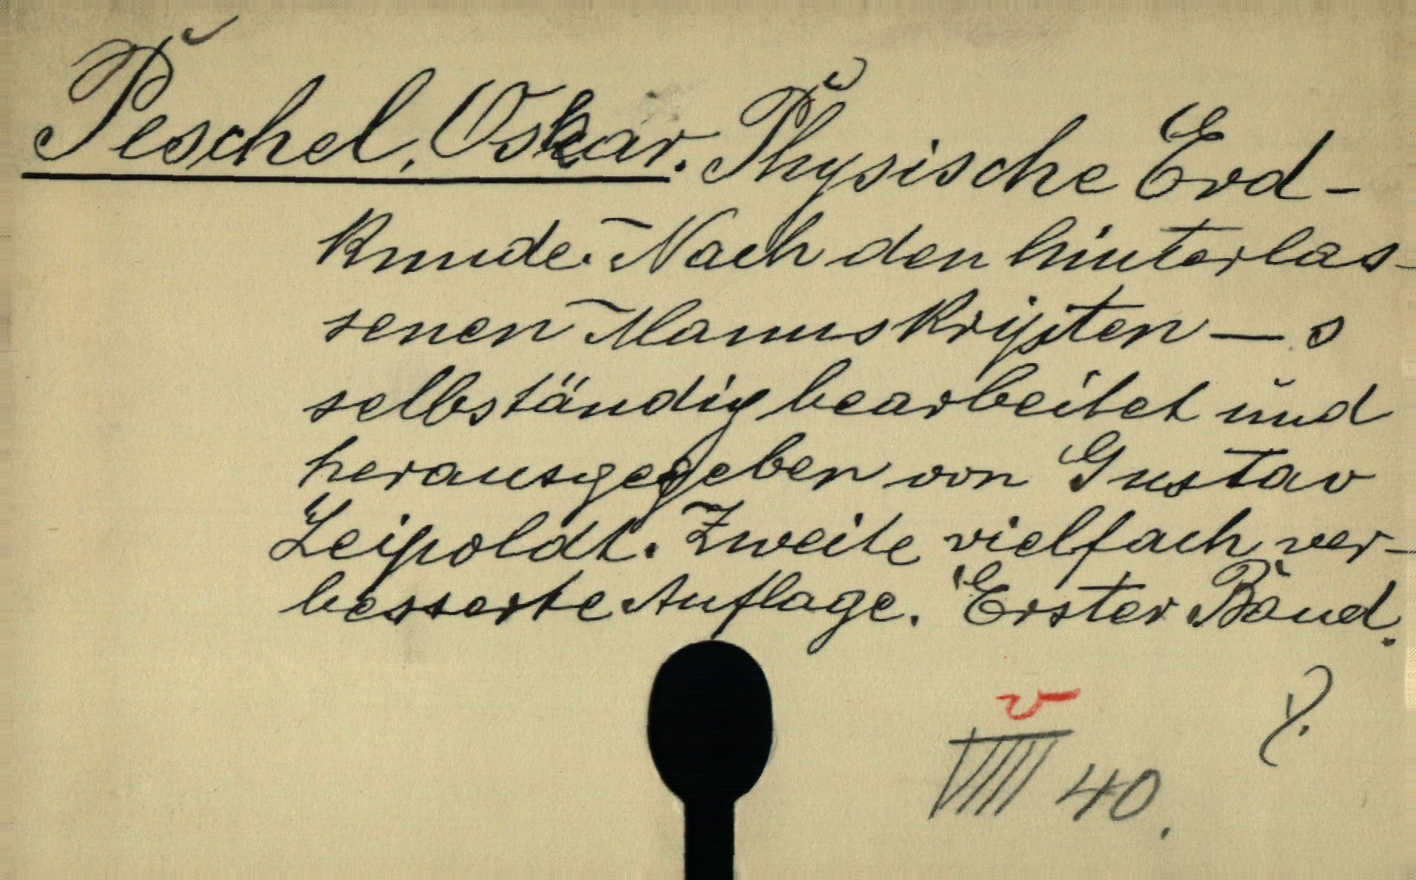 Peschel, Oskar. Physische Erd-
kunde. Nach den hinterlas-
senen Manuskripten — s
selbständig bearbeitet und
herausgegeben von Gustav
Leipoldt. Zweite vielfach ver-
besserte Auflage. Erster Band.
v
VIIII 40.